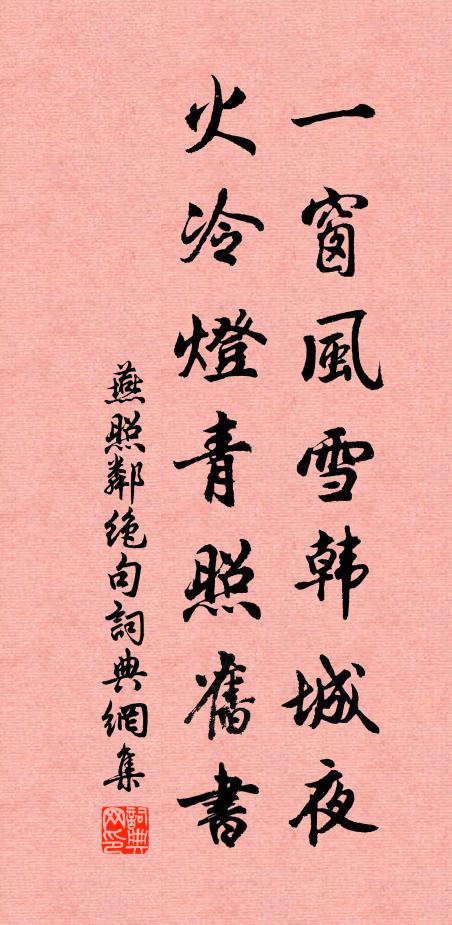 一窗風雪韩城夜
火冷燈青照舊書
燕照鄰絶句詞典網集
詞典
网印